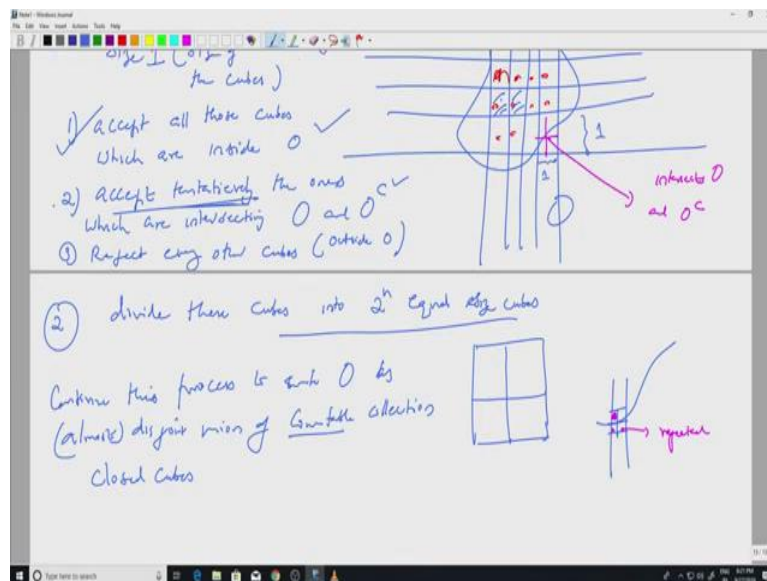 Note1 - Windows Journal
File Edit View Insert Actions Tools Help
the cubes)
1) accept all those cubes
which are inside O
2) accept tentatively the ones
which are intersecting O and O^c
③ Reject any other cubes (outside O)
1
1
O
intersects O
and O^c
② divide these cubes into 2^n equal size cubes
Continue this process to write O as
(almost) disjoint union of Countable collection
closed cubes
rejected
Type here to search
ENG